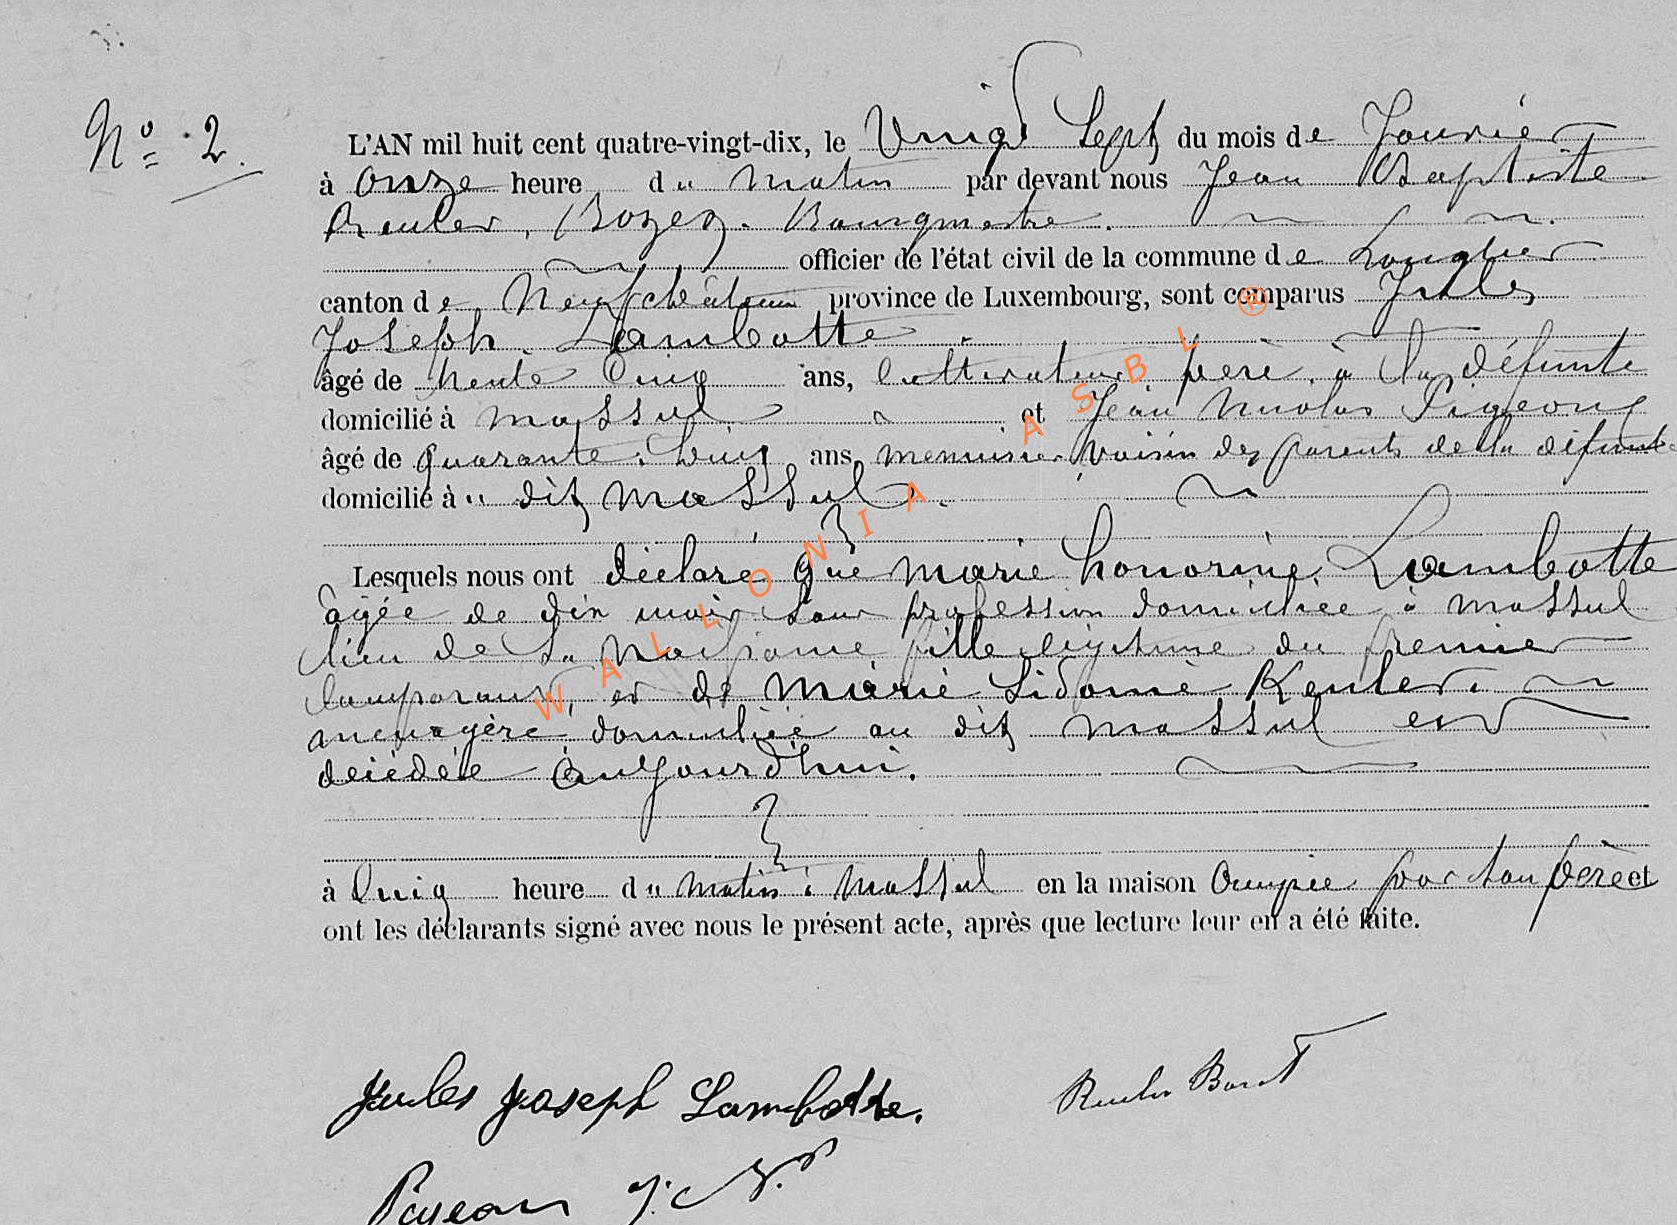 N° 2.
L'AN mil huit cent quatre-vingt-dix, le Vingt Sept du mois de Janvier
à Onze heure du Matin par devant nous Jean Baptiste
Reuler, Bourgmestre.
officier de l'état civil de la commune de Longlier
canton de Neufchâteau province de Luxembourg, sont comparus Jules
Joseph Lambotte
âgé de trente Cinq ans, Cultivateur, père à la défunte
domicilié à Massul et Jean Nicolas Pigeon
âgé de quarante Cinq ans menuisier voisin des parents de la défunte
domicilié au dit Massul.
Lesquels nous ont déclaré que Marie honorine Lambotte
âgée de dix mois Sans profession domiciliée à Massul
lieu de Sa Naissance fille légitime du premier
Comparant, et de Marie Sidonie Reuler
menagère domiciliée au dit Massul est
décédée aujourd'hui.
à Cinq heure du Matin à Massul en la maison Occupée par Son père et
ont les déclarants signé avec nous le présent acte, après que lecture leur en a été faite.
Jules Joseph Lambotte.
Pigeon J. N.
WALLONIA ASBL ®